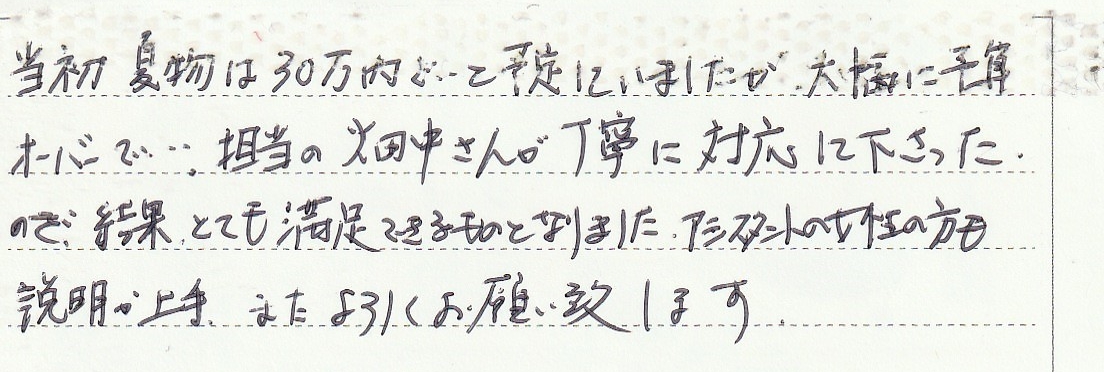 当初 夏物は30万円で…と予定していましたが、大幅に予算
オーバーで…。担当の畑中さんが丁寧に対応して下さった
ので、結果、とても満足できるものとなりました。アシスタントの女性の方も
説明が上手、またよろしくお願い致します。